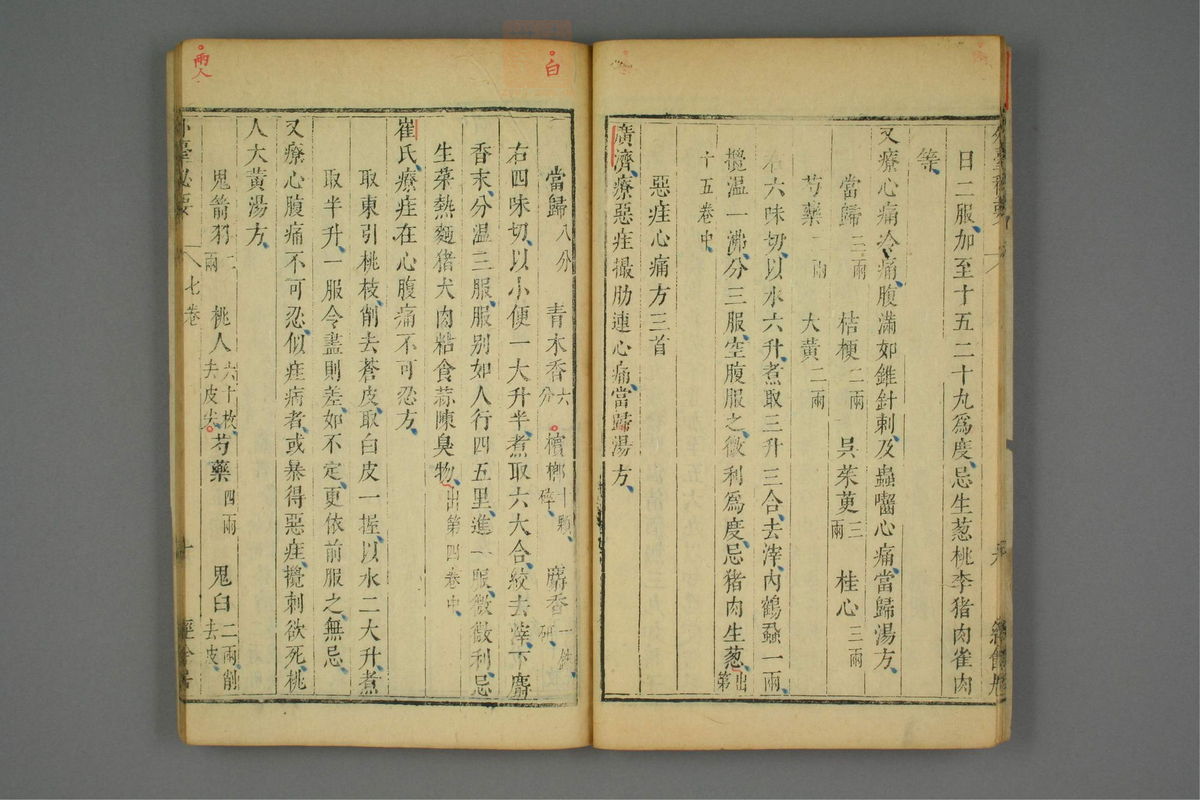 日二服加至十五二十丸爲度忌生葱桃李猪肉雀肉
等
又療心痛冷痛腹滿如錐針刺及蟲囓心痛當歸湯方
當歸二兩 桔梗二兩 吳茱萸三兩 桂心三兩
芍藥一兩 大黃二兩
右六味切以水六升煮取三升三合去滓内鶴蝨一兩
攪温一沸分三服空腹服之微利爲度忌猪肉生葱出第
十五卷中
惡疰心痛方三首
廣濟療惡疰撮肋連心痛當歸湯方
白
當歸八分 青木香六分 檳榔十顆碎 麝香一錢研
右四味切以小便一大升半煮取六大合絞去滓下麝
香末分温三服服别如人行四五里進一服微微利忌
生菜熱麵猪犬肉粘食蒜陳臭物出第四卷中
崔氏療疰在心腹痛不可忍方
取東引桃枝削去蒼皮取白皮一握以水二大升煮
取半升一服令盡則差如不定更依前服之無忌
又療心腹痛不可忍似疰病者或暴得惡疰攪刺欲死桃
人大黃湯方
鬼箭羽二兩 桃人六十枚去皮尖 芍藥四兩 鬼臼二兩削去皮
兩人
外臺秘要 七卷 十 經餘居